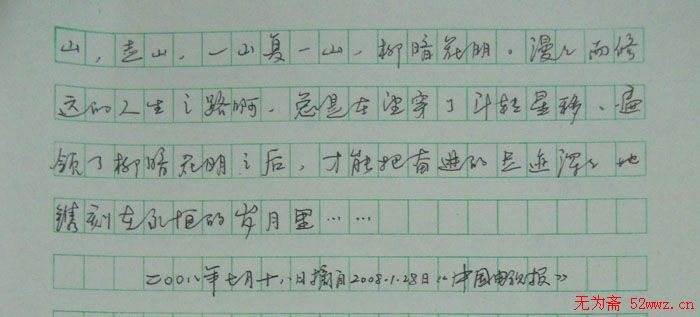 山，走山，一山复一山，柳暗花明。漫々而修
远的人生之路啊，总是在望穿了斗转星移、遍
领了柳暗花明之后，才能把奋进的足迹深々地
镌刻在永恒的岁月里……
二〇〇八年七月十八日摘自2008.1.28日《中国电视报》
无为斋 52wwz.cn